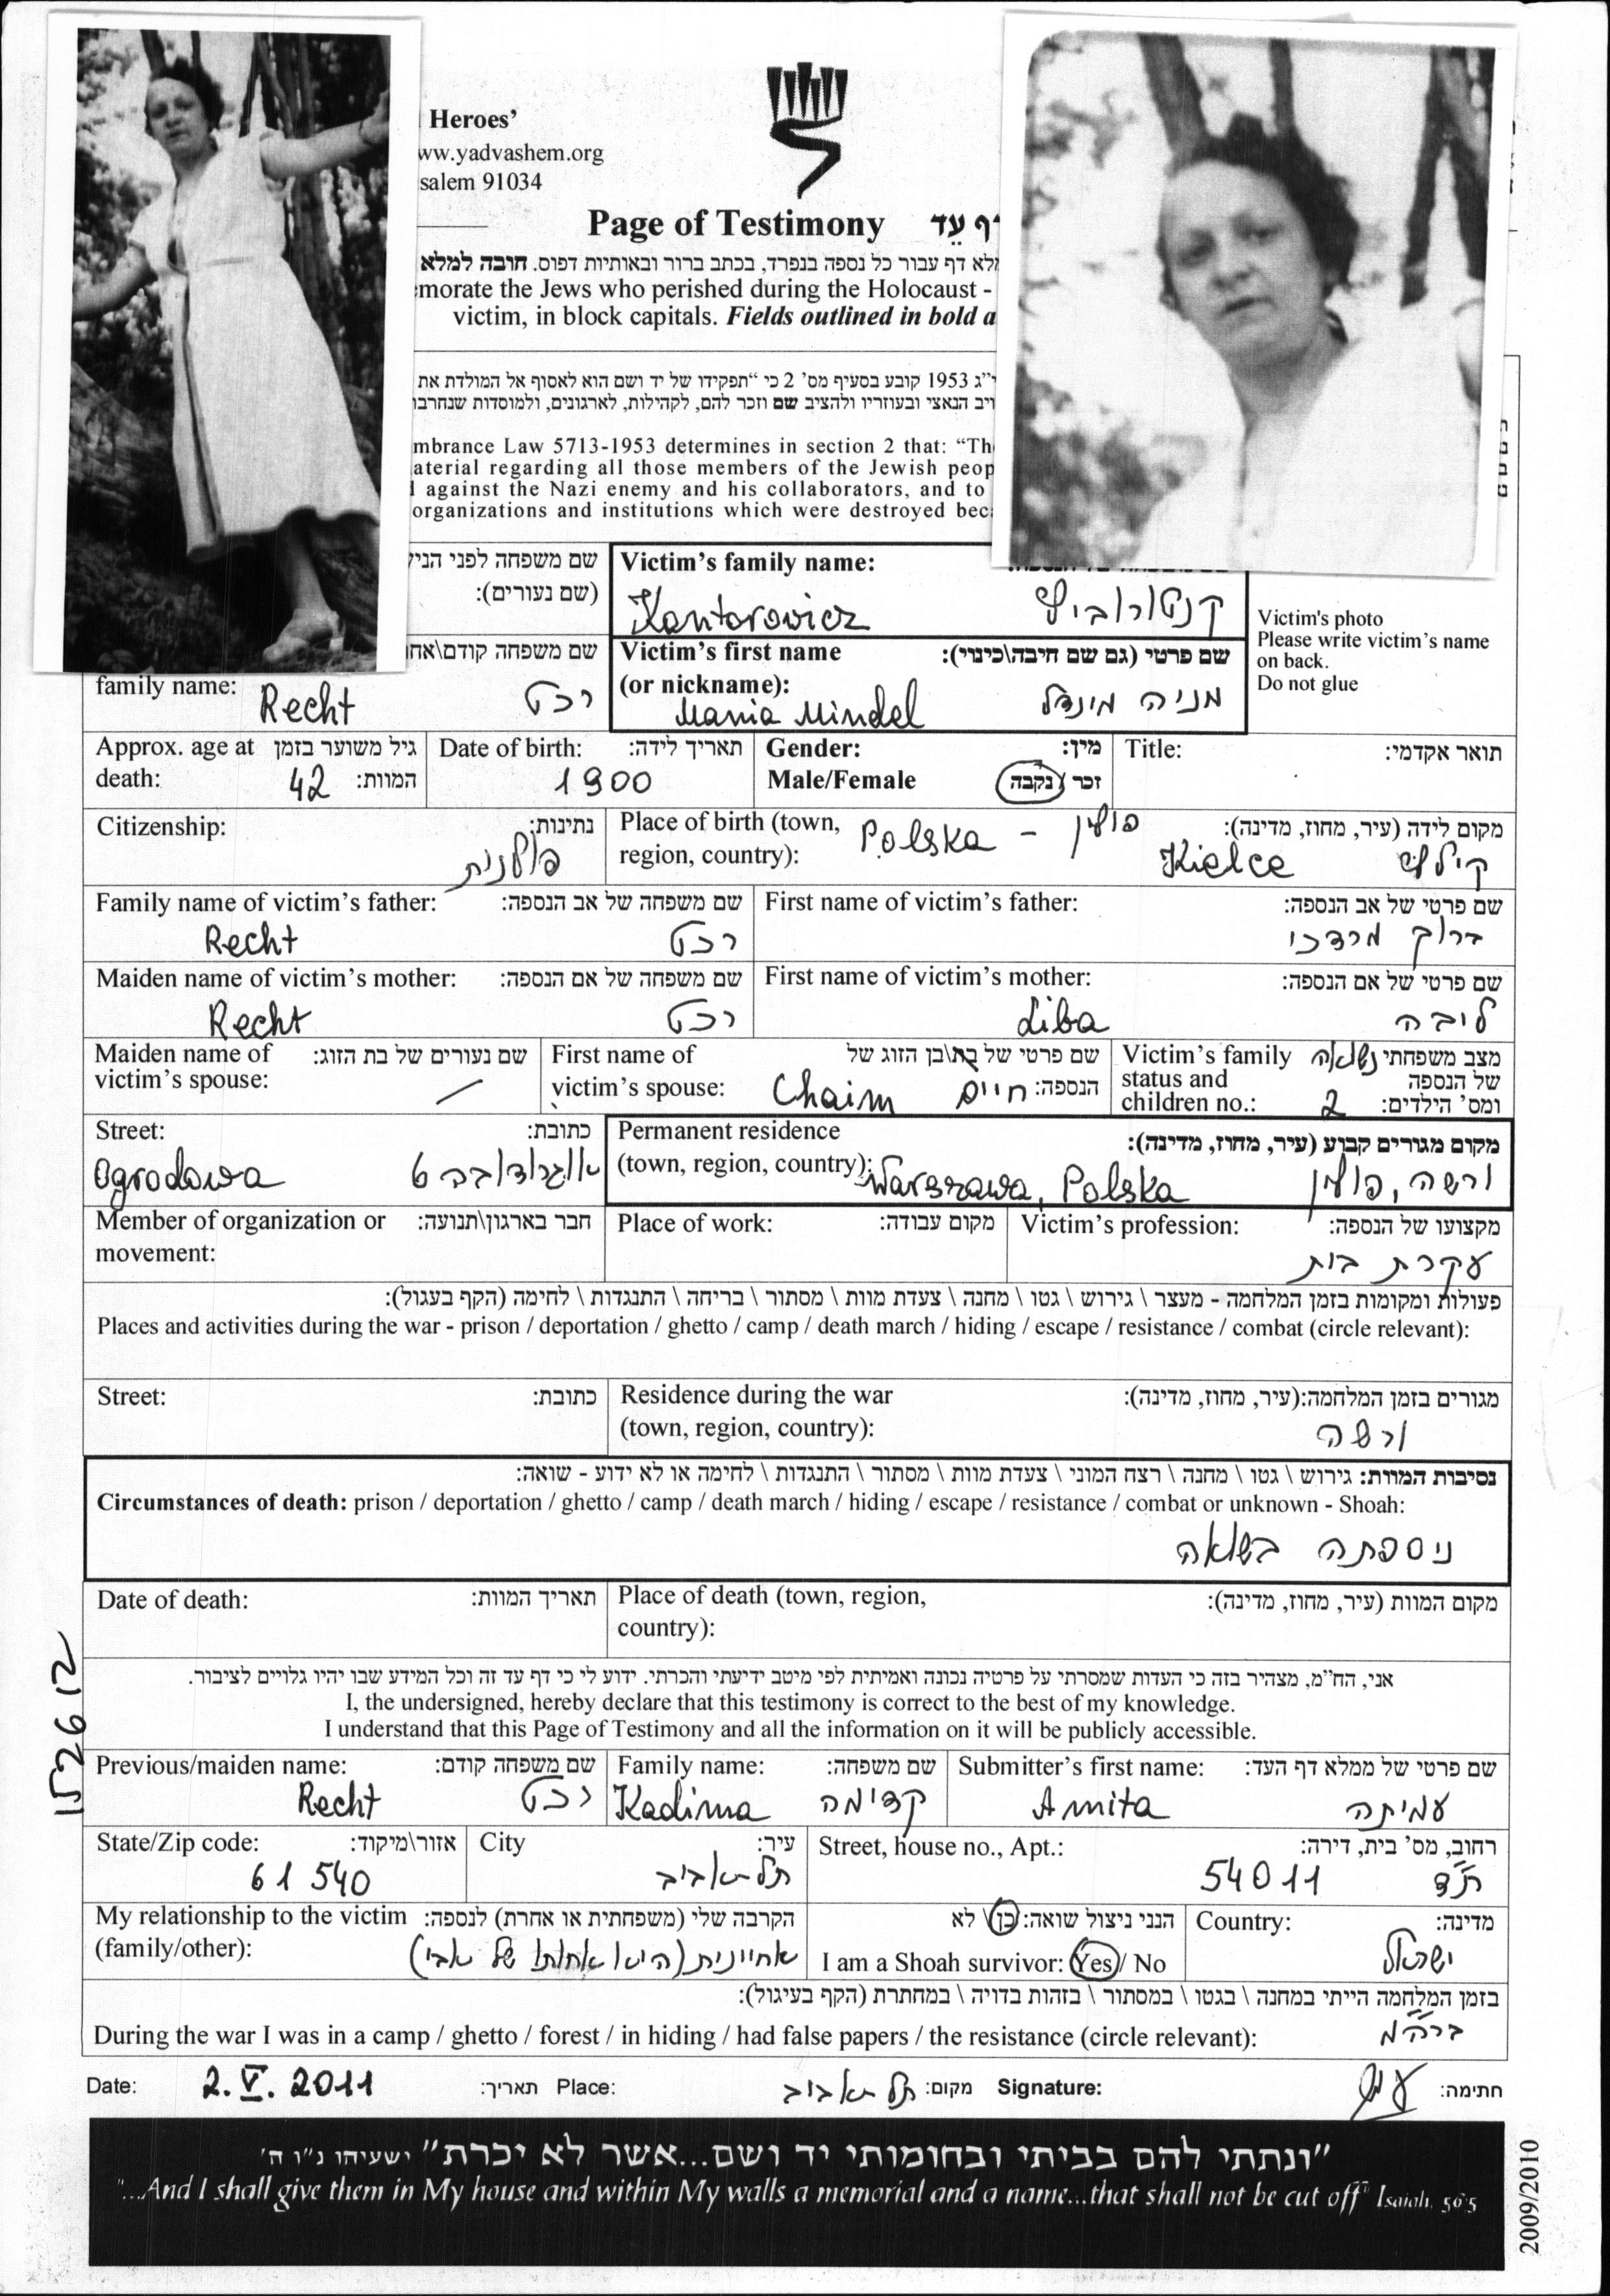 Heroes'
ww.yadvashem.org
salem 91034
Page of Testimony דף עד
לא דף עבור כל נספה בנפרד, בכתב ברור ובאותיות דפוס. חובה למלא
morate the Jews who perished during the Holocaust -
victim, in block capitals. Fields outlined in bold a
י"ג 1953 קובע בסעיף מס' 2 כי "תפקידו של יד ושם הוא לאסוף אל המולדת את
ויב הנאצי ובעוזריו ולהציב שם וזכר להם, לקהילות, לארגונים, ולמוסדות שנחרבו
mbrance Law 5713-1953 determines in section 2 that: "Th
aterial regarding all those members of the Jewish peop
against the Nazi enemy and his collaborators, and to
organizations and institutions which were destroyed bec
שם משפחה לפני הני
(שם נעורים):
Victim's family name:
Kantorowicz קנטורוביץ
Victim's photo
Please write victim's name
on back.
Do not glue
שם משפחה קודם\אח
family name: Recht רכט
Victim's first name שם פרטי (גם שם חיבה\כינוי):
(or nickname): Mania Mindel מניה מינדל
Approx. age at גיל משוער בזמן
death: 42 המוות:
Date of birth: תאריך לידה:
1900
Gender: מין:
Male/Female זכר / נקבה
Title: תואר אקדמי:
Citizenship: נתינות:
פולנית
Place of birth (town, מקום לידה (עיר, מחוז, מדינה):
region, country): Polska - פולין Kielce קילצ
Family name of victim's father: שם משפחה של אב הנספה:
Recht רכט
First name of victim's father: שם פרטי של אב הנספה:
ברוך מרדכי
Maiden name of victim's mother: שם משפחה של אם הנספה:
Recht רכט
First name of victim's mother: שם פרטי של אם הנספה:
Liba ליבה
Maiden name of שם נעורים של בת הזוג:
victim's spouse: /
First name of שם פרטי של בת\בן הזוג של
victim's spouse: Chaim חיים הנספה:
Victim's family מצב משפחתי נשואה
status and של הנספה
children no.: 2 ומס' הילדים:
Street: כתובת:
Ogrodowa אוגרודובה 6
Permanent residence מקום מגורים קבוע (עיר, מחוז, מדינה):
(town, region, country): Warszawa, Polska ורשה, פולין
Member of organization or חבר בארגון\תנועה:
movement:
Place of work: מקום עבודה:
Victim's profession: מקצועו של הנספה:
עקרת בית
פעולות ומקומות בזמן המלחמה - מעצר \ גירוש \ גטו \ מחנה \ צעדת מוות \ מסתור \ בריחה \ התנגדות \ לחימה (הקף בעגול):
Places and activities during the war - prison / deportation / ghetto / camp / death march / hiding / escape / resistance / combat (circle relevant):
Street: כתובת:
Residence during the war מגורים בזמן המלחמה:(עיר, מחוז, מדינה):
(town, region, country): ורשה
נסיבות המוות: גירוש \ גטו \ מחנה \ רצח המוני \ צעדת מוות \ מסתור \ התנגדות \ לחימה או לא ידוע - שואה:
Circumstances of death: prison / deportation / ghetto / camp / death march / hiding / escape / resistance / combat or unknown - Shoah:
ניספתה בשואה
Date of death: תאריך המוות:
Place of death (town, region, מקום המוות (עיר, מחוז, מדינה):
country):
אני, הח"מ, מצהיר בזה כי העדות שמסרתי על פרטיה נכונה ואמיתית לפי מיטב ידיעתי והכרתי. ידוע לי כי דף עד זה וכל המידע שבו יהיו גלויים לציבור.
I, the undersigned, hereby declare that this testimony is correct to the best of my knowledge.
I understand that this Page of Testimony and all the information on it will be publicly accessible.
Previous/maiden name: שם משפחה קודם:
Recht רכט
Family name: שם משפחה:
Kadima קדימה
Submitter's first name: שם פרטי של ממלא דף העד:
Amita עמיתה
State/Zip code: אזור\מיקוד:
61 540
City עיר:
תל-אביב
Street, house no., Apt.: רחוב, מס' בית, דירה:
54011 ת"ד
My relationship to the victim הקרבה שלי (משפחתית או אחרת) לנספה:
(family/other): אחיינית (היא אחותו של אבי)
הנני ניצול שואה: כן \ לא
I am a Shoah survivor: Yes / No
Country: מדינה:
ישראל
בזמן המלחמה הייתי במחנה \ בגטו \ במסתור \ בזהות בדויה \ במחתרת (הקף בעיגול):
During the war I was in a camp / ghetto / forest / in hiding / had false papers / the resistance (circle relevant):
ברה"מ
Date: 2.V.2011 תאריך: Place: תל-אביב מקום: Signature: חתימה:
"ונתתי להם בביתי ובחומותי יד ושם...אשר לא יכרת" ישעיהו נ"ו ה'
"...And I shall give them in My house and within My walls a memorial and a name...that shall not be cut off" Isaiah, 56:5
152612
2009/2010